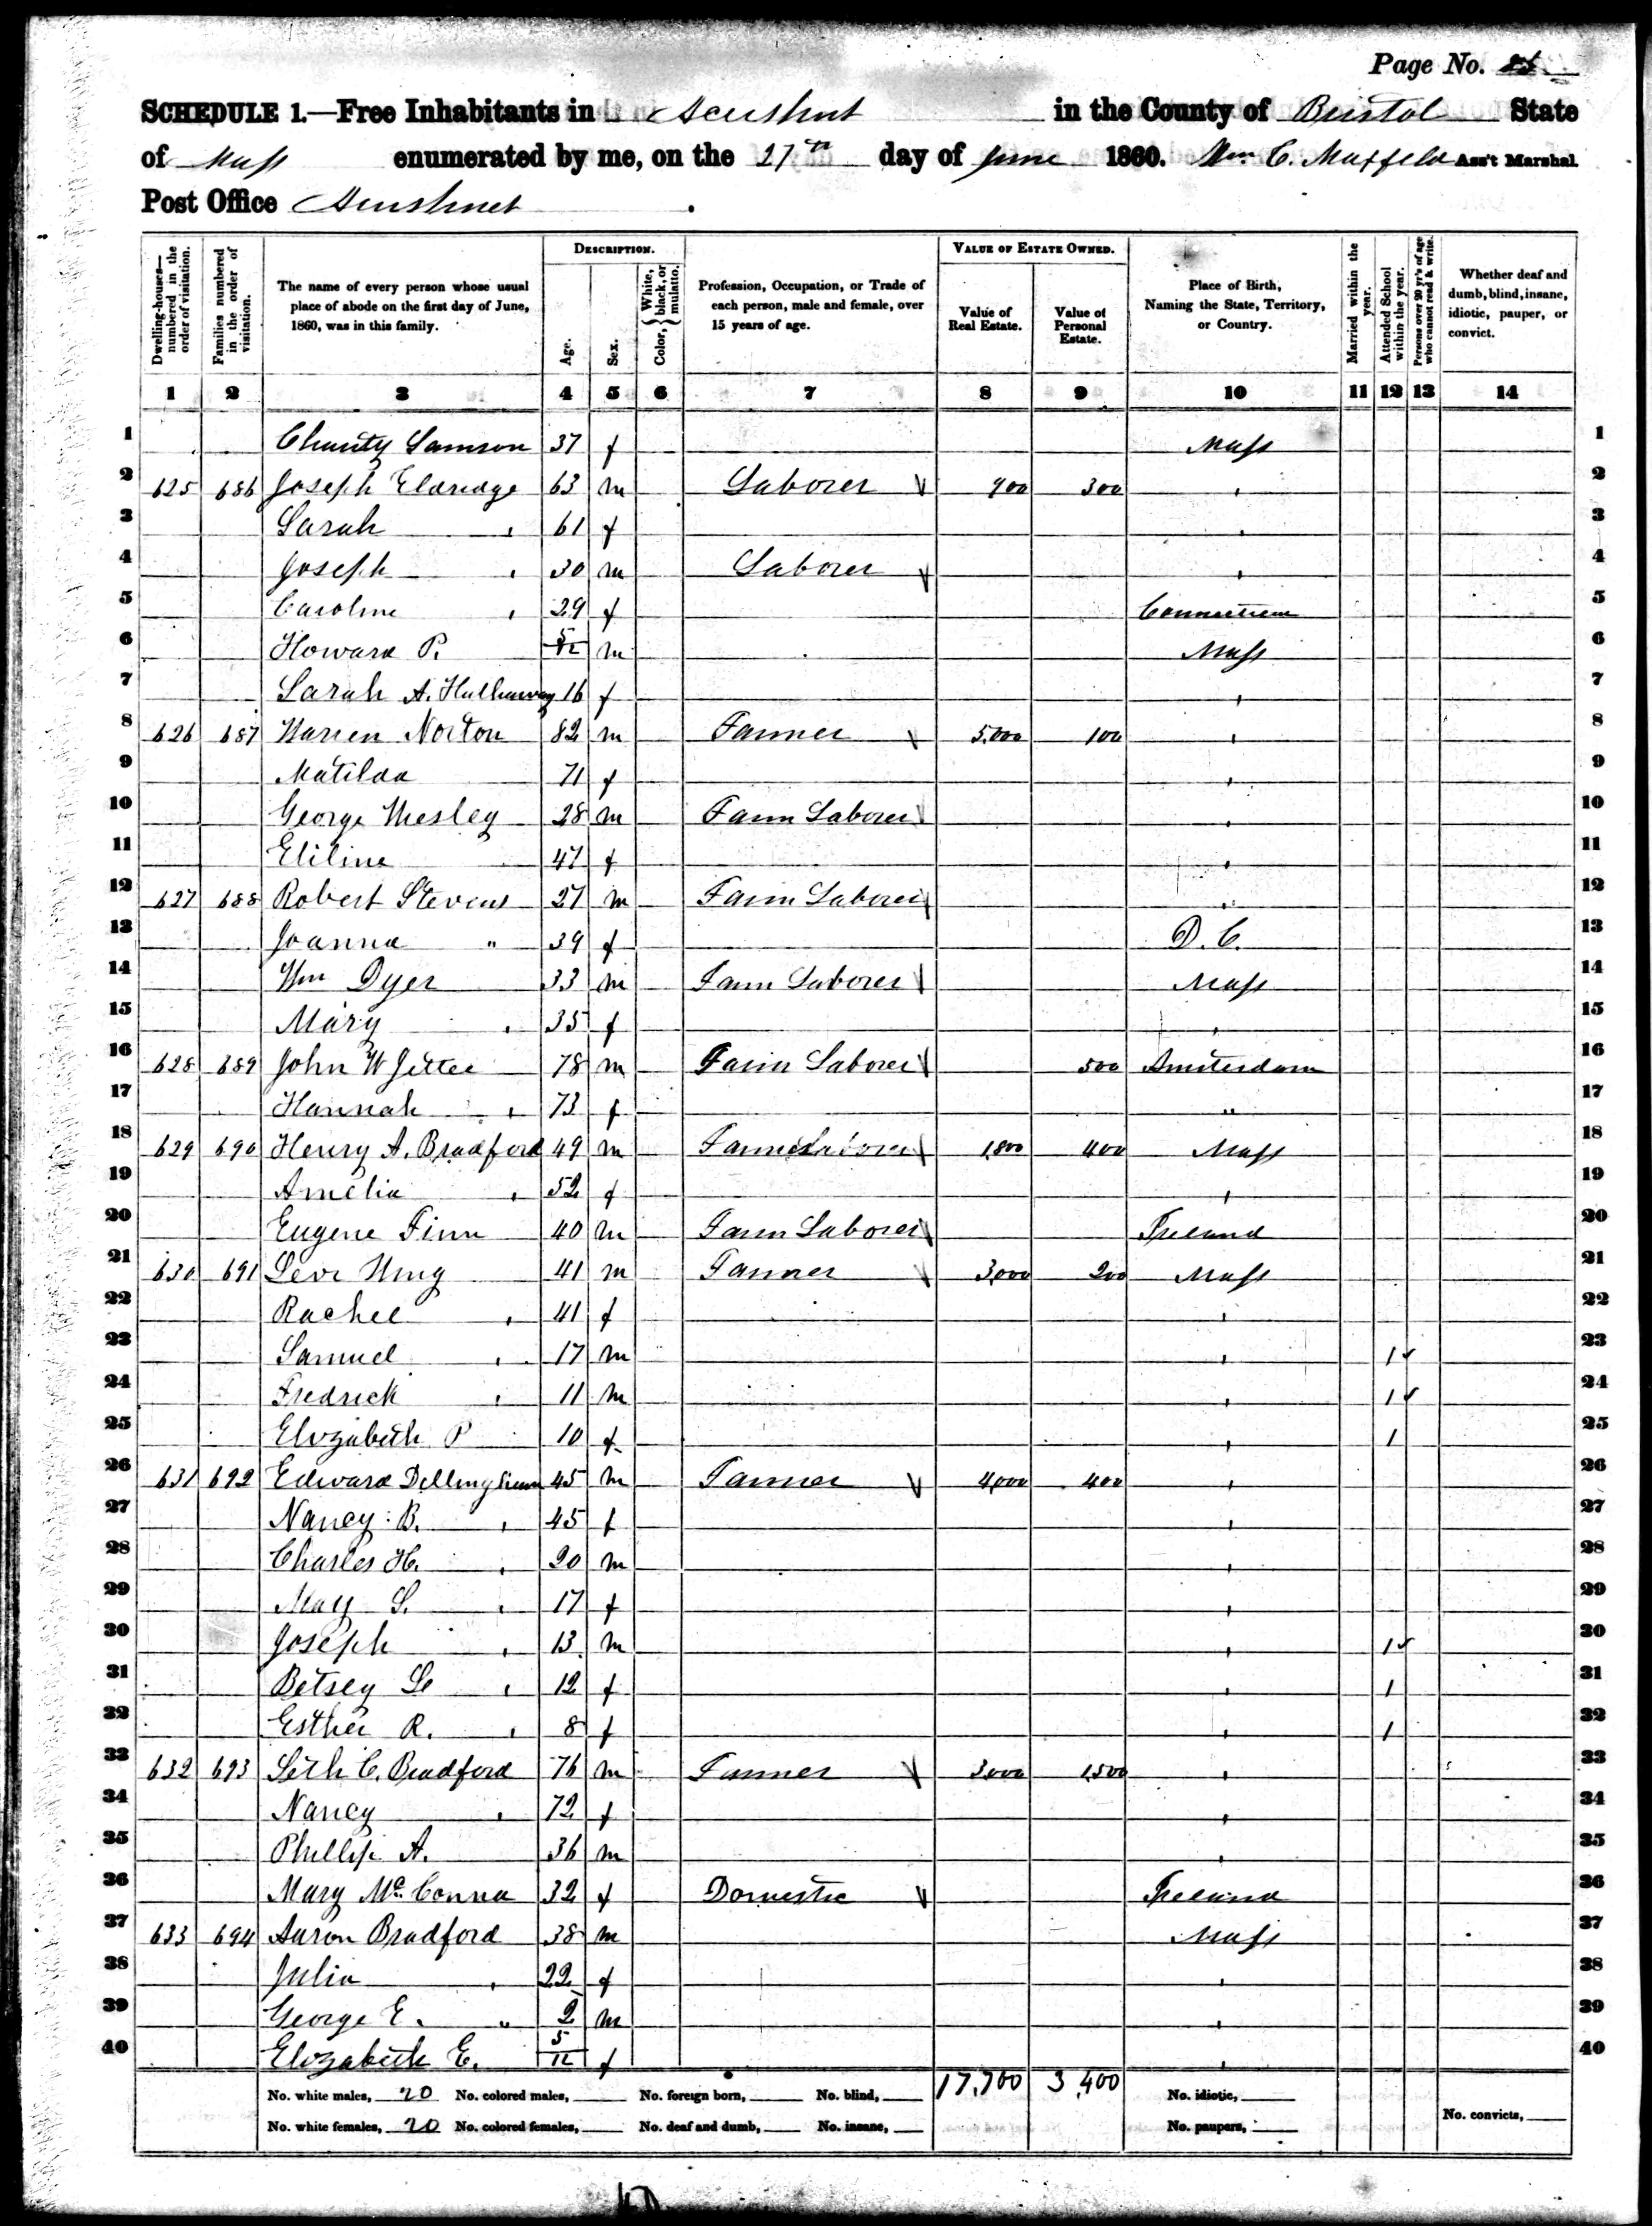 Page No.
SCHEDULE 1.—Free Inhabitants in Acushnet in the County of Bristol State
of Mass enumerated by me, on the 27th day of June 1860. Wm C. Maxfield Ass't Marshal.
Post Office Acushnet
Dwelling-houses—numbered in the order of visitation. Families numbered in the order of visitation. The name of every person whose usual place of abode on the first day of June, 1860, was in this family. DESCRIPTION. Age. Sex. Color, { White, black, or mulatto. Profession, Occupation, or Trade of each person, male and female, over 15 years of age. VALUE OF ESTATE OWNED. Value of Real Estate. Value of Personal Estate. Place of Birth, Naming the State, Territory, or Country. Married within the year. Attended School within the year. Persons over 20 yr's of age who cannot read & write. Whether deaf and dumb, blind, insane, idiotic, pauper, or convict.
1 2 3 4 5 6 7 8 9 10 11 12 13 14
1 Charity Samson 37 f Mass 1
2 625 686 Joseph Eldridge 63 m Laborer 900 300 " 2
3 Sarah " 61 f " 3
4 Joseph " 30 m Laborer " 4
5 Caroline " 29 f Connecticut 5
6 Howard P. 5/12 m Mass 6
7 Sarah A. Hathaway 16 f " 7
8 626 687 Warren Norton 82 m Farmer 5,000 100 " 8
9 Matilda 71 f " 9
10 George Wesley 28 m Farm Laborer " 10
11 Eliline 47 f " 11
12 627 688 Robert Stevens 27 m Farm Laborer " 12
13 Joanna " 39 f D. C. 13
14 Wm Dyer 33 m Farm Laborer Mass 14
15 Mary " 35 f " 15
16 628 689 John W Jetter 78 m Farm Laborer 500 Amsterdam 16
17 Hannah " 73 f " 17
18 629 690 Henry A. Bradford 49 m Farm Laborer 1,800 400 Mass 18
19 Amelia " 52 f " 19
20 Eugene Finn 40 m Farm Laborer Ireland 20
21 630 691 Levi Wing 41 m Farmer 3,000 200 Mass 21
22 Rachel " 41 f " 22
23 Samuel " 17 m " 1 23
24 Fredrick " 11 m " 1 24
25 Elizabeth P 10 f " 1 25
26 631 692 Edward Dillingham 45 m Farmer 4,000 400 " 26
27 Nancy B. " 45 f " 27
28 Charles H. " 20 m " 28
29 Mary S. " 17 f " 29
30 Joseph " 13 m " 1 30
31 Betsey " 12 f " 1 31
32 Esther R. " 8 f " 1 32
33 632 693 Seth C. Bradford 76 m Farmer 3,000 1,500 " 33
34 Nancy " 72 f " 34
35 Phillip A. 36 m " 35
36 Mary McConna 32 f Domestic Ireland 36
37 633 694 Aaron Bradford 38 m Mass 37
38 Julia " 22 f " 38
39 George E. " 2 m " 39
40 Elizabeth E. 5/12 f " 40
No. white males, 20 No. colored males, No. foreign born, No. blind, 17,700 3,400 No. idiotic,
No. white females, 20 No. colored females, No. deaf and dumb, No. insane, No. paupers, No. convicts,